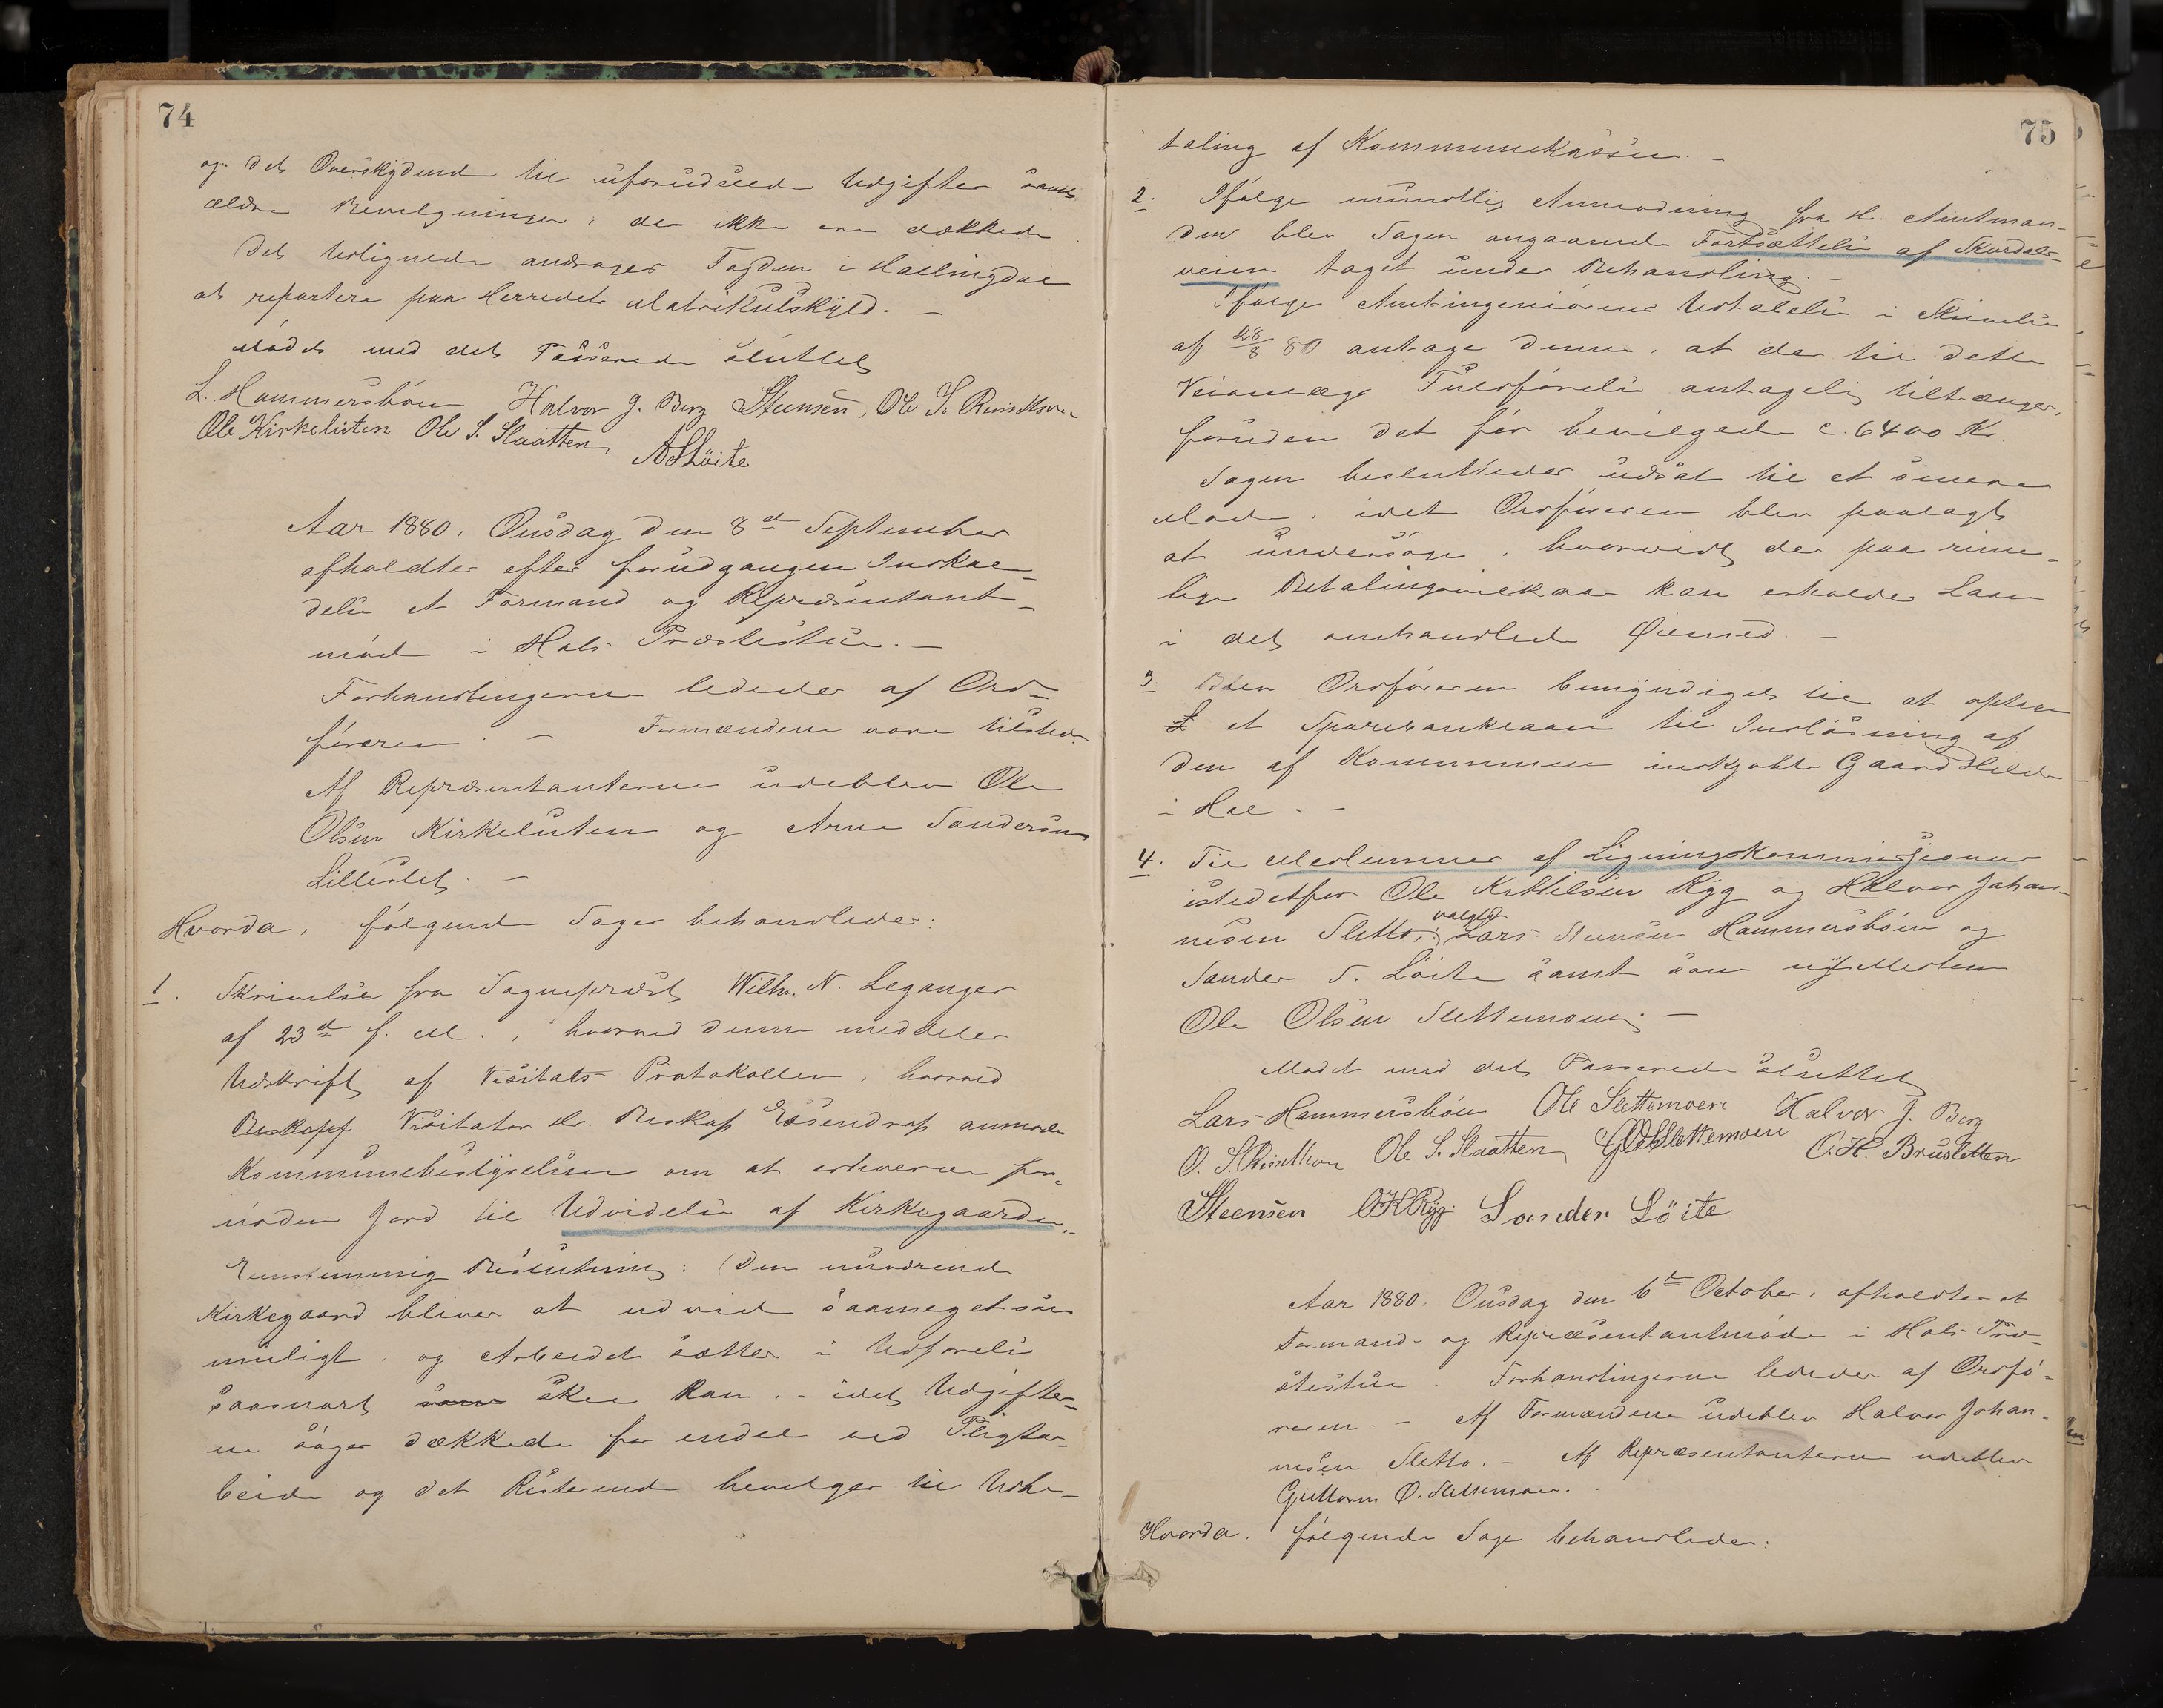 74
og det Overskydende til uforudseede Udgifter samt
ældre Bevilgninger, der ikke ere dækkede.
Det Udlignede andrages Fogden i Hallingdal
at repartere paa Herredets Matrikulskyld. –
Mødet med det Passerede sluttet
L. Hammersbøen Halvor J. Berg Steensen, Ole S.
Ole Kirkeluten Ole S. Slaatten
ASLöite
Aar 1880. Onsdag den 8de September
afholdtes efter forudgangen Indkal-
delse et Formand og Repræsentant-
møde i Hols Præstestue. –
Forhandlingerne lededes af Ord-
føreren. – Formændene vare tilstede.
Af Repræsentanterne udeblev Ole
Olsen Kirkeluten og Arne Sandersen
Lilleslet. –
Hvorda, følgende Sager behandledes:
1. Skrivelse fra Sogneprest Wilh. N. Leganger
af 23de f. M., hvorved denne meddeler
Udskrift af Visitats Protokollen, hvorved
Biskopf Visitator Hr. Biskop Essendrop anmoder
Kommunebestyrelsen om at erhverve for-
nøden Jord til Udvidelse af Kirkegaarden.–
Eenstemmig Beslutning: (Den nuværende
Kirkegaard bliver at udvide saameget som
muligt, og Arbeidet sættes i Udførelse
saasnart som skee kan, – idet Udgifter-
ne søges dækkede for endel ved Pligtar-
beide og det Resterende bevilges til Udbe-
75
taling af Kommunekassen. –
2. Ifølge mundtlig Anmodning fra H. Amtman-
den blev Sagen angaaende Fortsættelse af Skurdals-
veien taget under Behandling. –
Ifølge Amtingeniørens Udtalelse i Skrivelse
af 28/8 80 antager denne, at der til dette
Veianlægs Fuldførelse antagelig tiltrænges,
foruden det før bevilgede c. 6400 Kr.
Sagen besluttedes udsat til et senere
Møde, idet Ordføreren blev paalagt
at undersøge, hvorvidt der paa rime-
lige Betalingsvilkaar kan erholdes Laan
i det omhandlede Øiemed. –
3. Blev Ordføreren bemyndiget til at optage
L et Sparebanklaan til Indløsning af
den af Kommunen indkjøbte Gaard Hilde
i Hol. –
4. Til Medlemmer af Ligningskommissionen
istedetfor Ole Kittilsen Ryg og Halvor Johan-
nesen Sletto, valgtes Lars Steensen Hammersbøen og
Sander S. Löite samt som nyt Medlem
Ole Olsen Slettemoen. –
Mødet med det Passerede sluttet
Lars Hammersbøen Ole Slettemoen Halvor J. Berg
O. S. Ole S. Slaatten GOSlettemoen O.H. Brusletten
Steensen OKRyg Sander Löite
Aar 1880. Onsdag den 6te October, afholdtes et
Formand- og Repræsentantmøde i Hols Præ-
stestue. Forhandlingerne lededes af Ordfø-
reren. – Af Formændene udeblev Halvor Johan-
nesen Sletto. – Af Repræsentanterne udeblev
Guttorm O. Slettemoen.
Hvorda. følgende Sager behandledes: